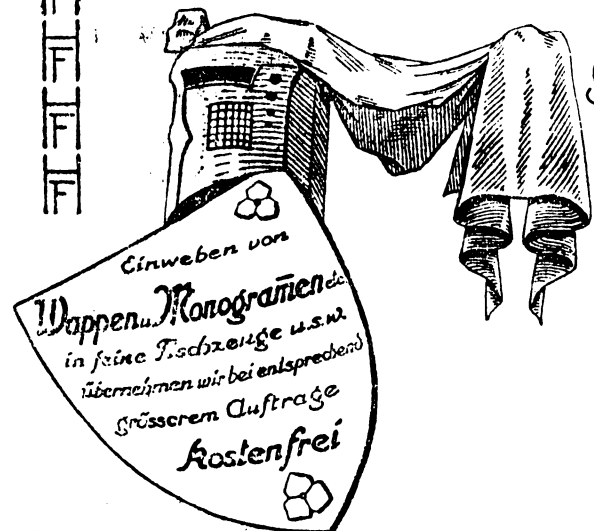 F
F
F
Einweben von
Wappen u. Monogram̅en etc.
in feine Tischzeuge u.s.w.
übernehmen wir bei entsprechend
grösserem Auftrage
kostenfrei